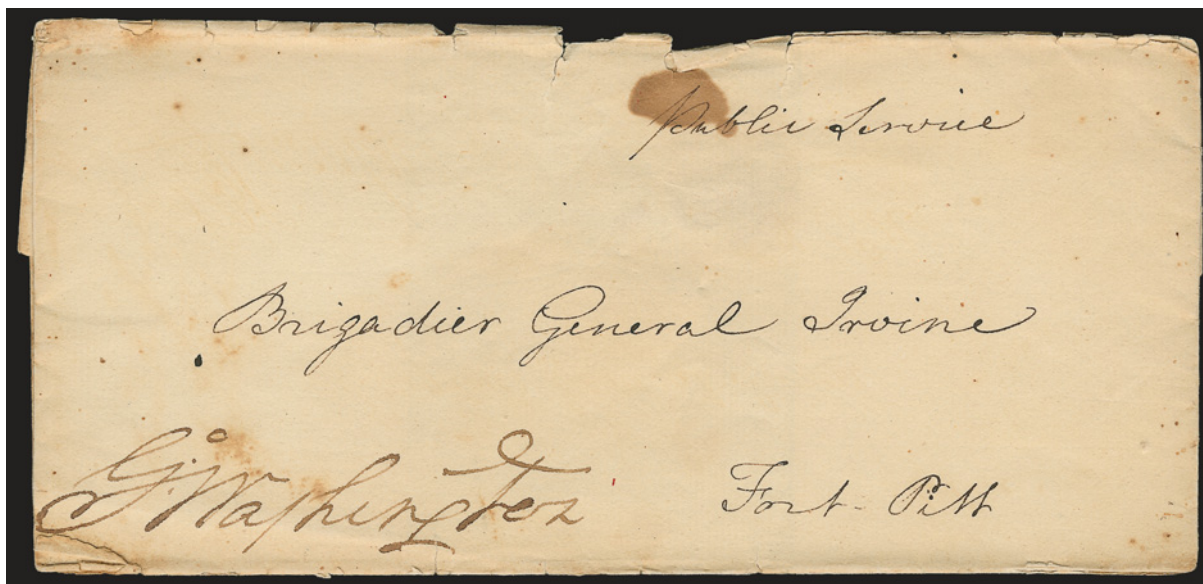 Public Service
Brigadier General Irvine
Go: Washington
Fort Pitt